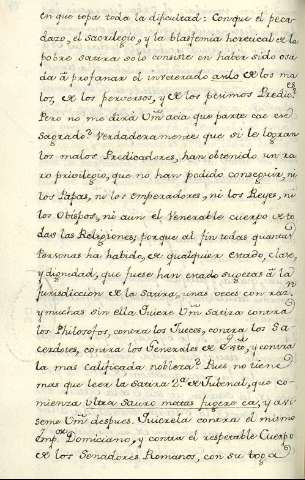 en que topa toda la dificultad: Conque el peca-
dazo, el sacrilegio, y la blasfemia heretical de la
pobre satira solo consiste en haber sido osa-
da â profanar el inveterado asilo de los ma-
los, de los perversos, y de los pesimos Predicᵉˢ
Pero no me dira Vm̃ acia que parte cae ese
Sagrado? Verdaderamente que si le logran
los malos Predicadores, han obtenido un ra-
ro privilegio, que no han podido conseguir, ni
los Papas, ni los emperadores, ni los Reyes, ni
los Obispos, ni aun el Venerable cuerpo de to-
das las Religiones; porque al fin todas quantas
Personas ha habido, de qualquier estado, clase,
y dignidad, que fuese han estado sugetas â la
Jurisdiccion de la Satira, unas veces con razⁿ
y muchas sin ella. Quiere Vm̃ satira contra
los Philosofos, contra los Jueces, contra los Sa-
cerdotes, contra los Generales de Extᵗᵒ, y contra
la mas calificada nobleza? Pues no tiene
mas que leer la Satira 2ª de Jubenal, que co-
mienza Ultra Sauro matas fugere ea, y avi-
seme Vm̃ despues. Quierela contra el mismo
Empᵒʳ Domiciano, y contra el respetable Cuerpo
de los Senadores Romanos, con su toga